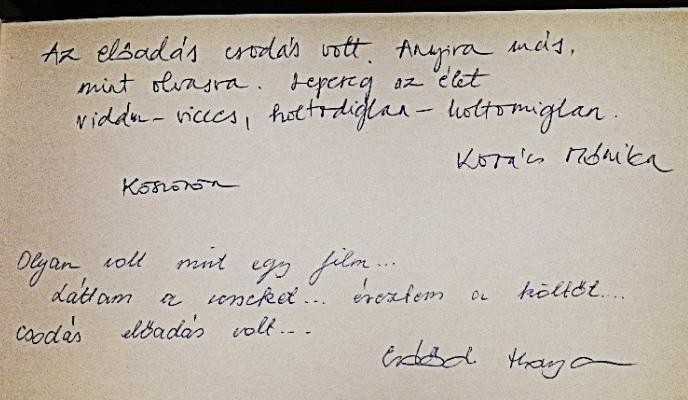 Az előadás csodás volt. Annyira más,
mint olvasva. Lepereg az élet
vidám - vicces, holtodiglan - holtomiglan.
Kovács Mónika
Köszönöm
Olyan volt mint egy film...
Láttam a verseket... éreztem a költőt....
Csodás előadás volt....